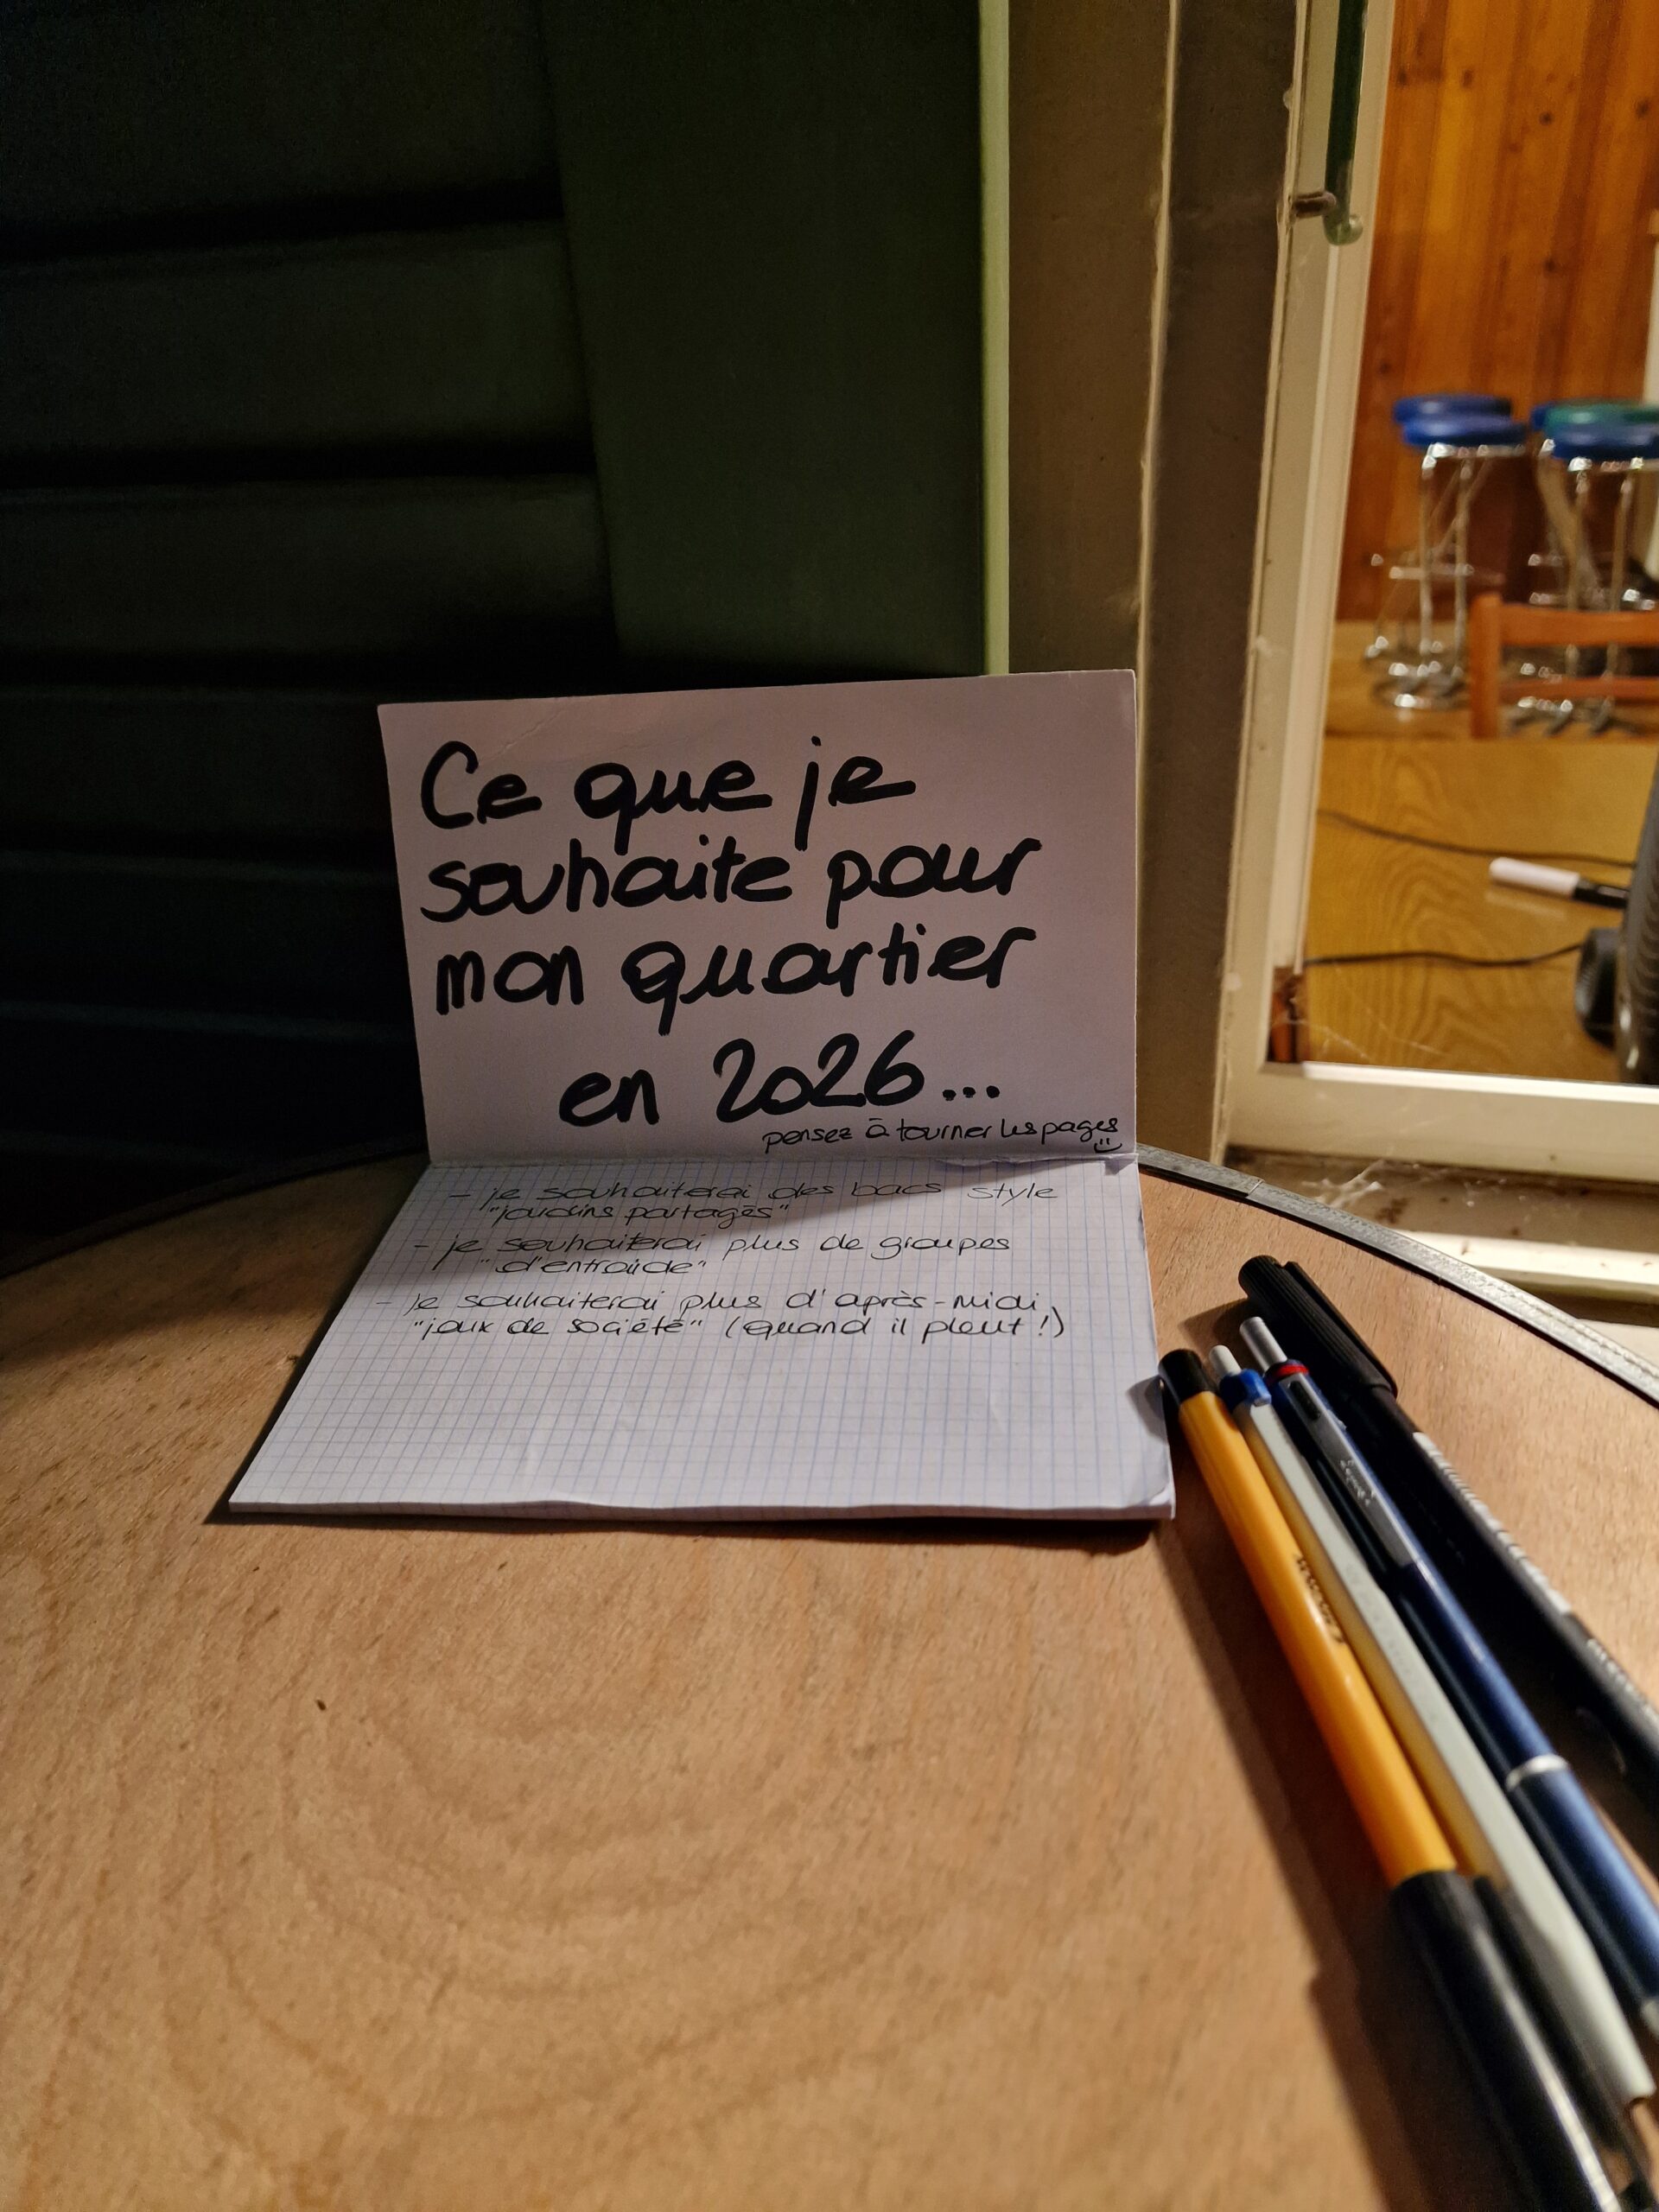 Ce que je
souhaite pour
mon quartier
en 2026...
pensez à tourner les pages
- je souhaiterai des bacs style
"jardins partagés"
- je souhaiterai plus de groupes
"d'entraide"
- je souhaiterai plus d'après-midi
"jeux de société" (quand il pleut !)